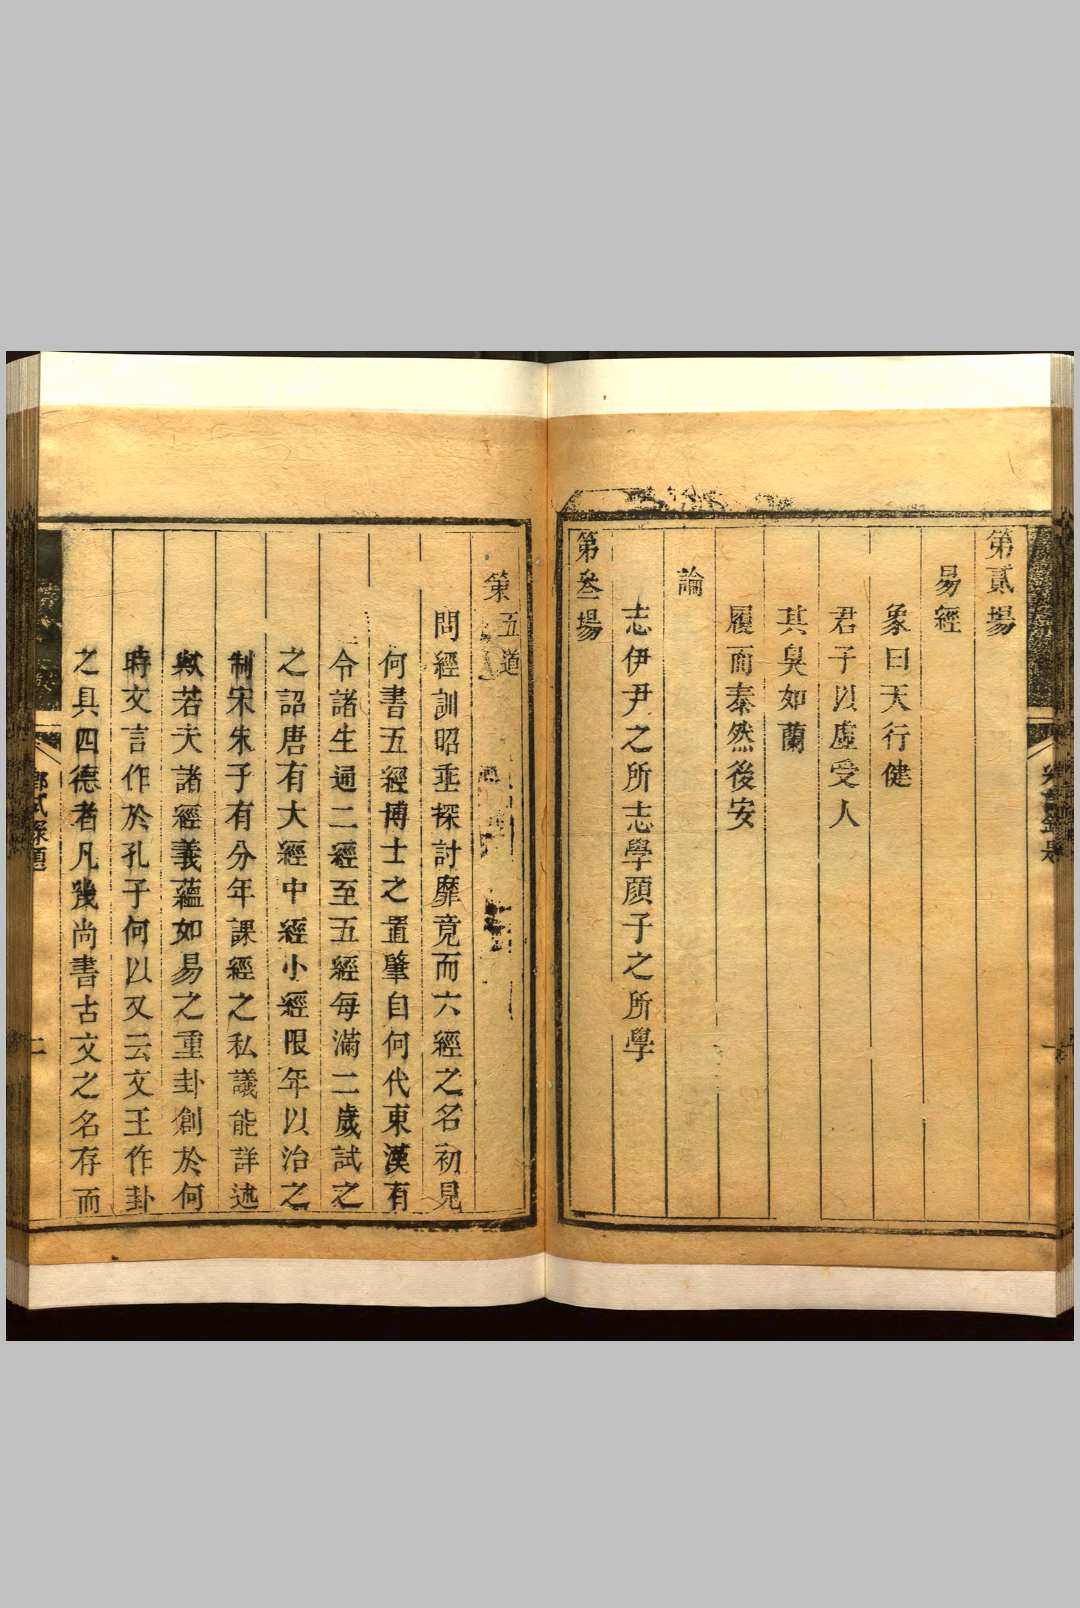 第貳場
易經
象曰天行健
君子以虛受人
其臭如蘭
履而泰然後安
論
志伊尹之所志學顏子之所學
第叁場
策五道
問經訓昭垂探討靡竟而六經之名初見
何書五經博士之置肇自何代東漢有
令諸生通二經至五經每滿二歲試之
之詔唐有大經中經小經限年以治之
制宋朱子有分年課經之私議能詳述
歟若夫諸經義蘊如易之重卦創於何
時文言作於孔子何以又云文王作卦
之具四德者凡幾尚書古文之名存而
鄉試錄題